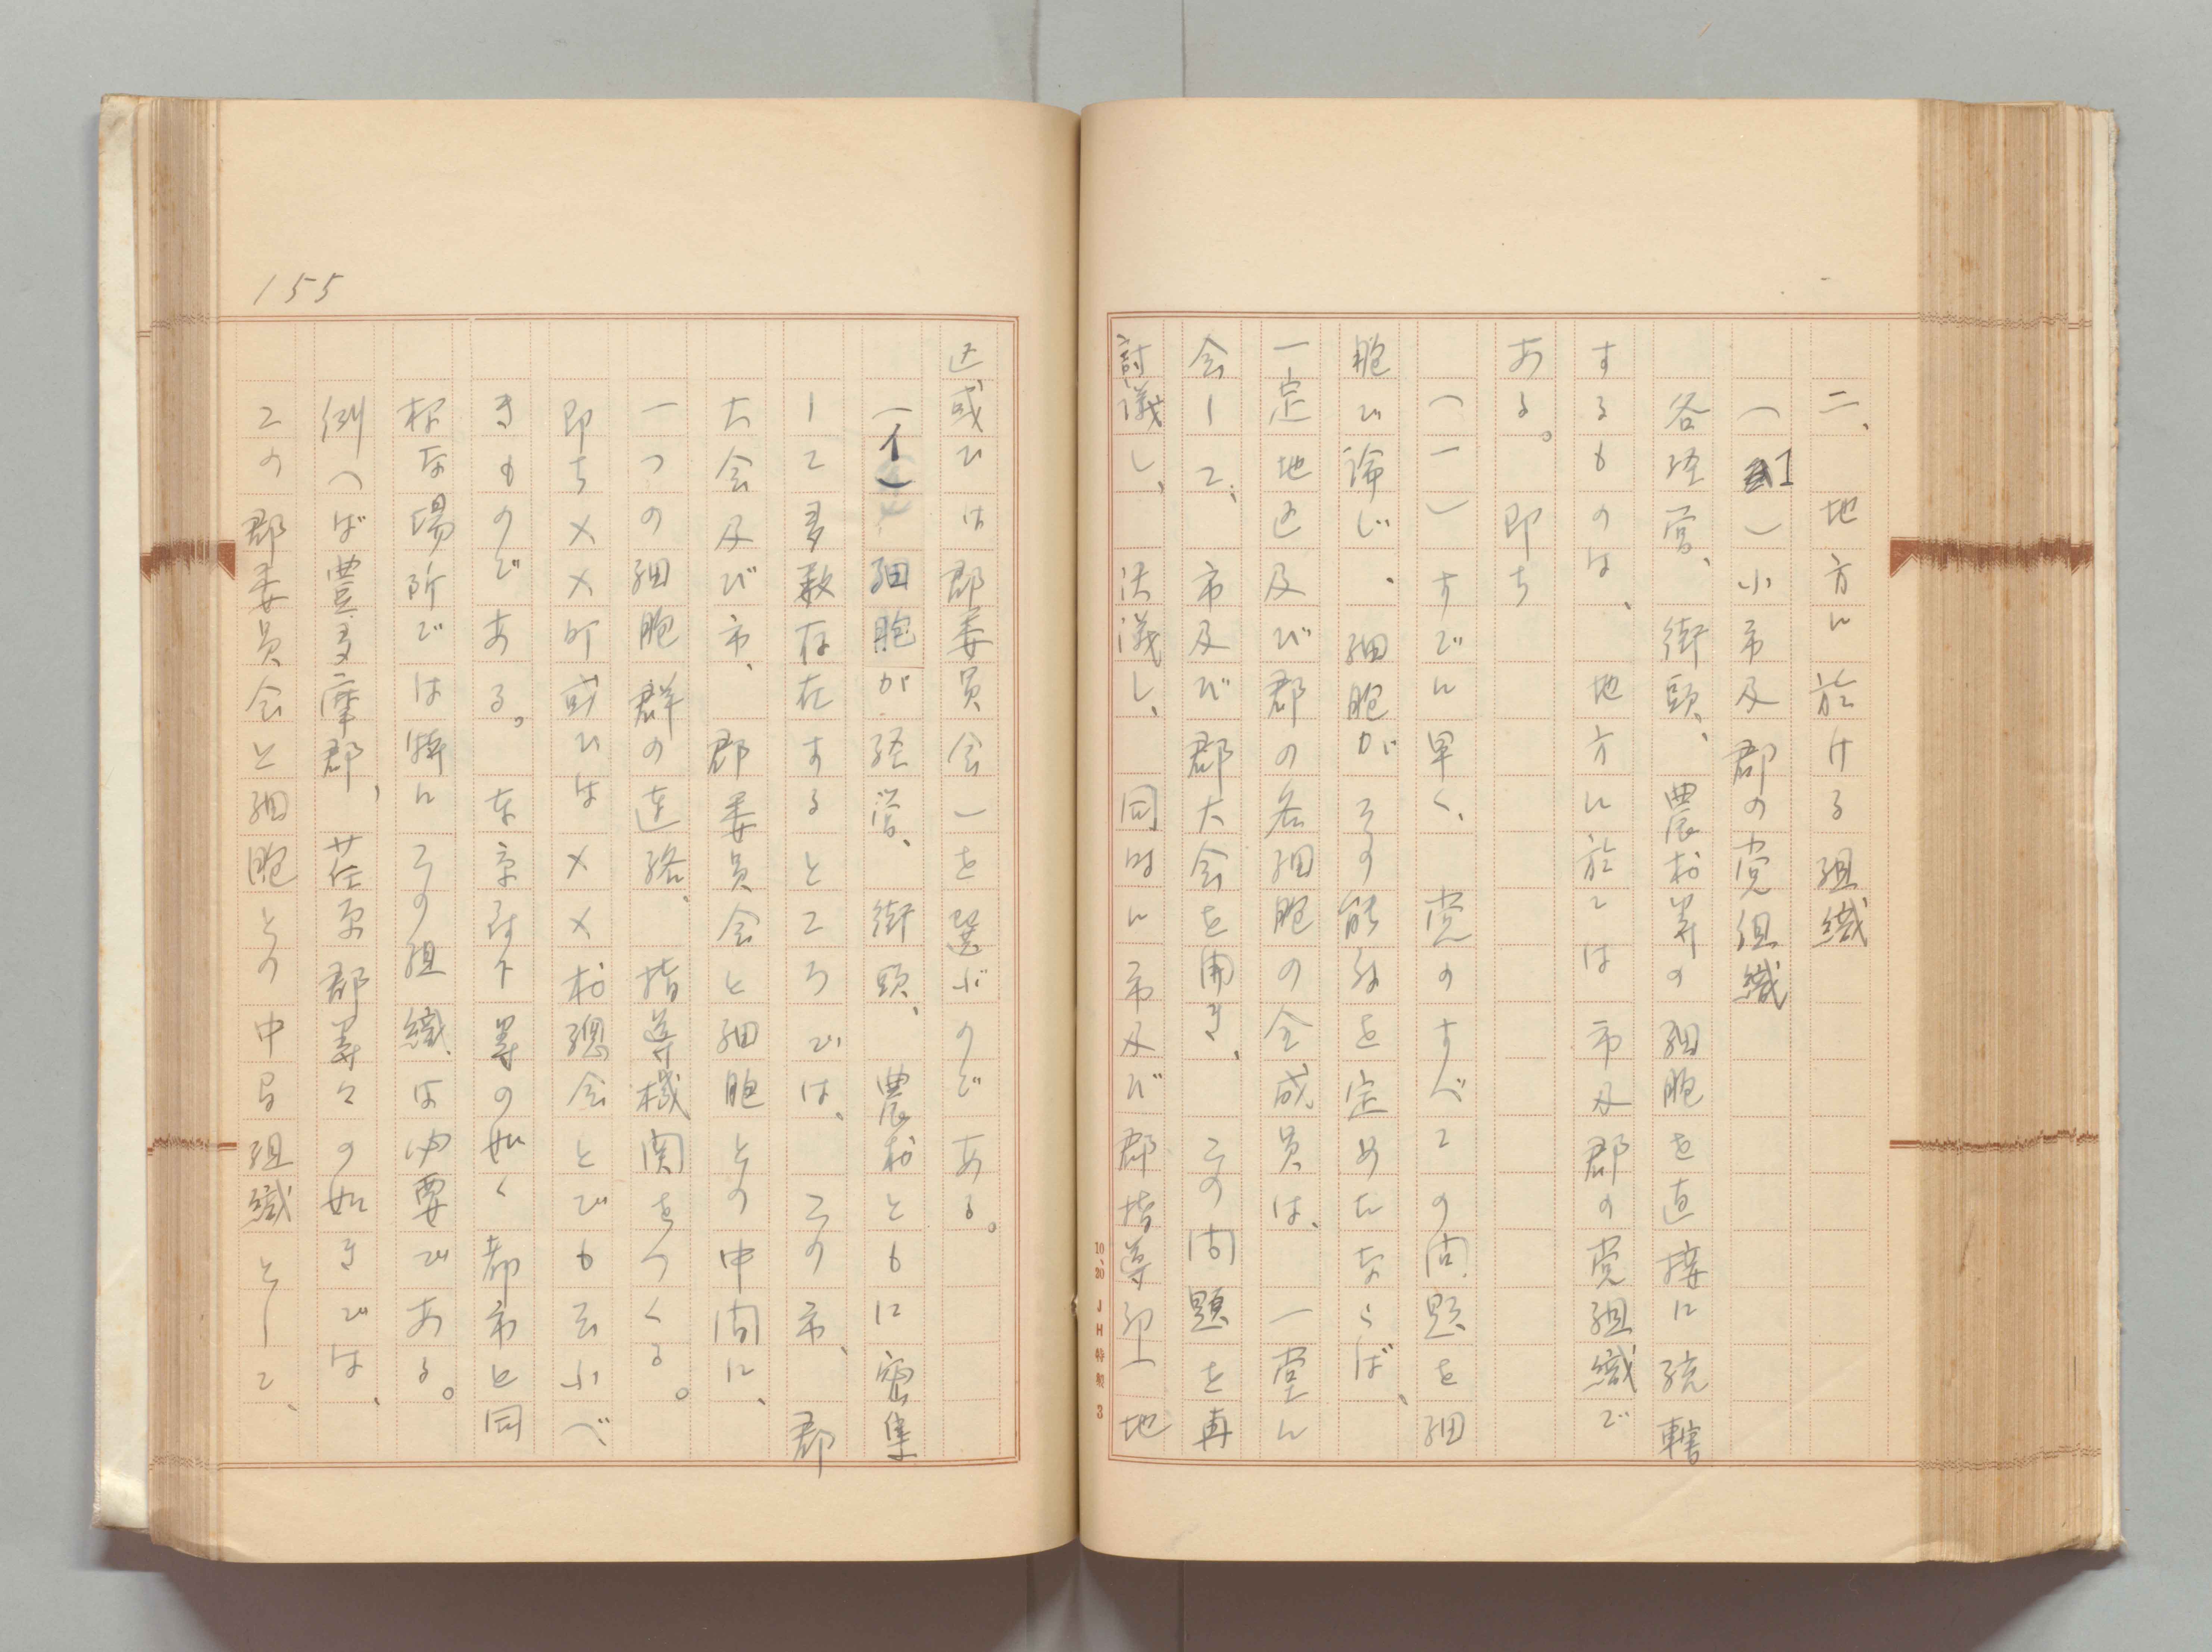 二、地方に於ける組織
(1)小市及郡の党組織
各経営、街頭、農村等の細胞を直接に統轄
するものは、地方に於ては市及郡の党組織で
ある。即ち
(一)すでに早く、党のすべての問題を細
胞で論じ、細胞がその態度を定めたならば、
一定地区及び郡の各細胞の全成員は、一堂に
会して、市及び郡大会を開き、この問題を再
討議し、決議し、同時に市及び郡指導部―地
区或ひは郡委員会―を選ぶのである。
(イ)細胞が経営、街頭、農村ともに密集
して多数存在するところでは、この市、郡
大会及び市、郡委員会と細胞との中間に、
一つの細胞群の連絡、指導機関をつくる。
即ち××町或ひは××村総会とでも云ふべ
きものである。東京府下等の如く都市と同
様な場所では特にその組織は必要である。
例へば豊多摩郡、荏原郡等々の如きでは、
この郡委員会と細胞との中局組織として、
155
10、20 JH特製 3